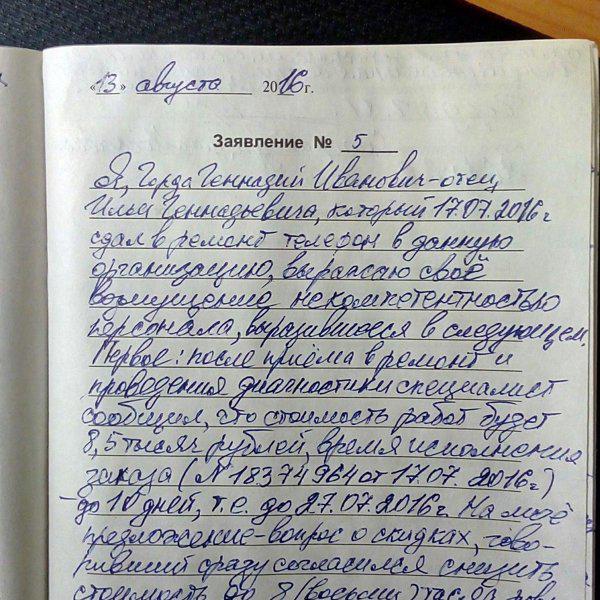 «13» августа 2016 г.
Заявление № 5
Я, Горда Геннадий Иванович-отец
Ильи Геннадьевича, который 17.07.2016г
сдал в ремонт телефон в данную
организацию, выражаю своё
возмущение некомпетентностью
персонала, выразившееся в следующем.
Первое: после приёма в ремонт и
проведения диагностики специалист
сообщил, что стоимость работ будет
8,5 тысяч рублей, время исполнения
заказа (N 18374964 от 17.07.2016г)
-до 10 дней, т.е. до 27.07.2016г. На моё
предложение-вопрос о скидках, гово-
ривший сразу согласился снизить
стоимость до 8 (восьми) тысяч